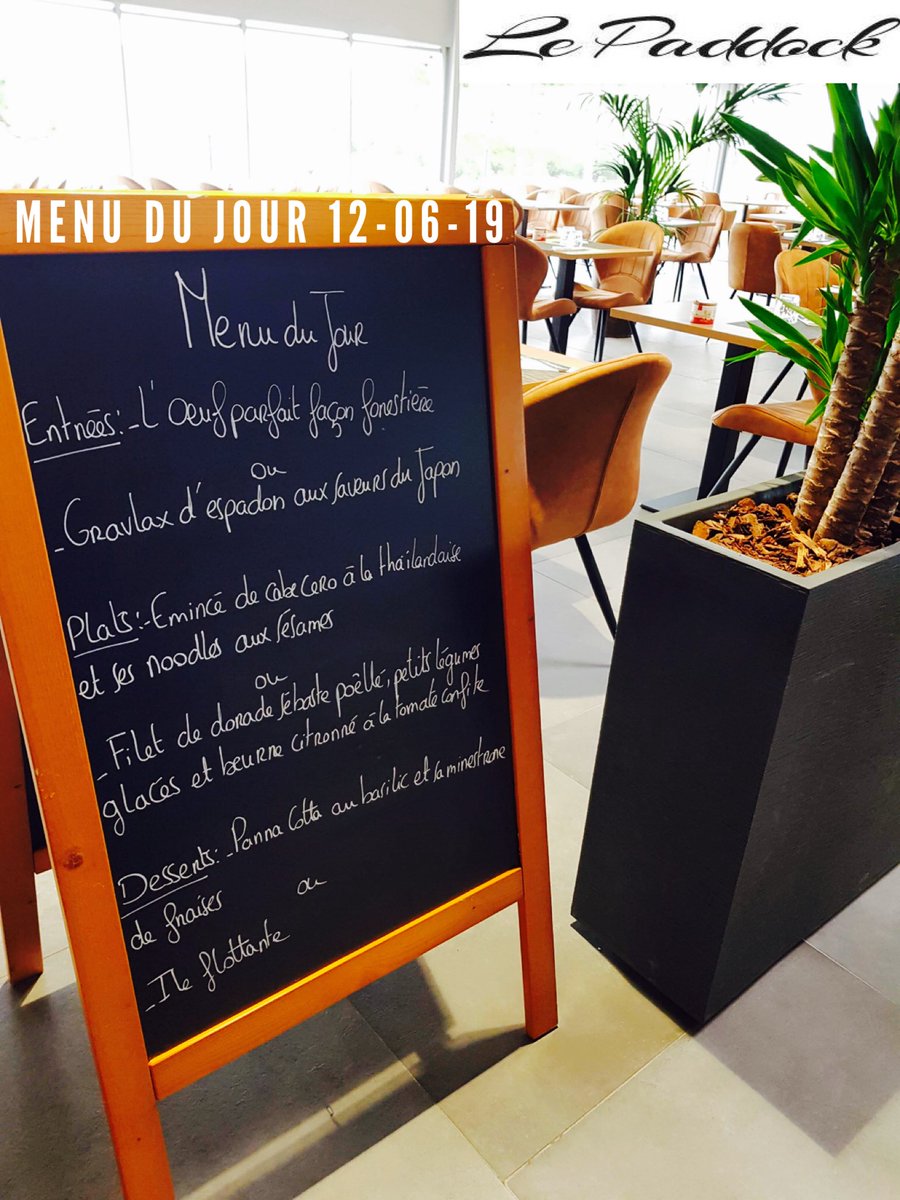 Le Paddock
MENU DU JOUR 12-06-19
Menu du Jour
Entrées:-L'Oeuf parfait façon forestière
ou
-Gravlax d'espadon aux saveurs du Japon
Plats:-Emincé de cabecero à la thaïlandaise
et ses noodles aux sésames
ou
-Filet de dorade sébaste poêllé, petits légumes
glacés et beurre citronné à la tomate confite
Desserts:-Panna Cotta au basilic et sa minestrone
de fraises
ou
-Ile flottante